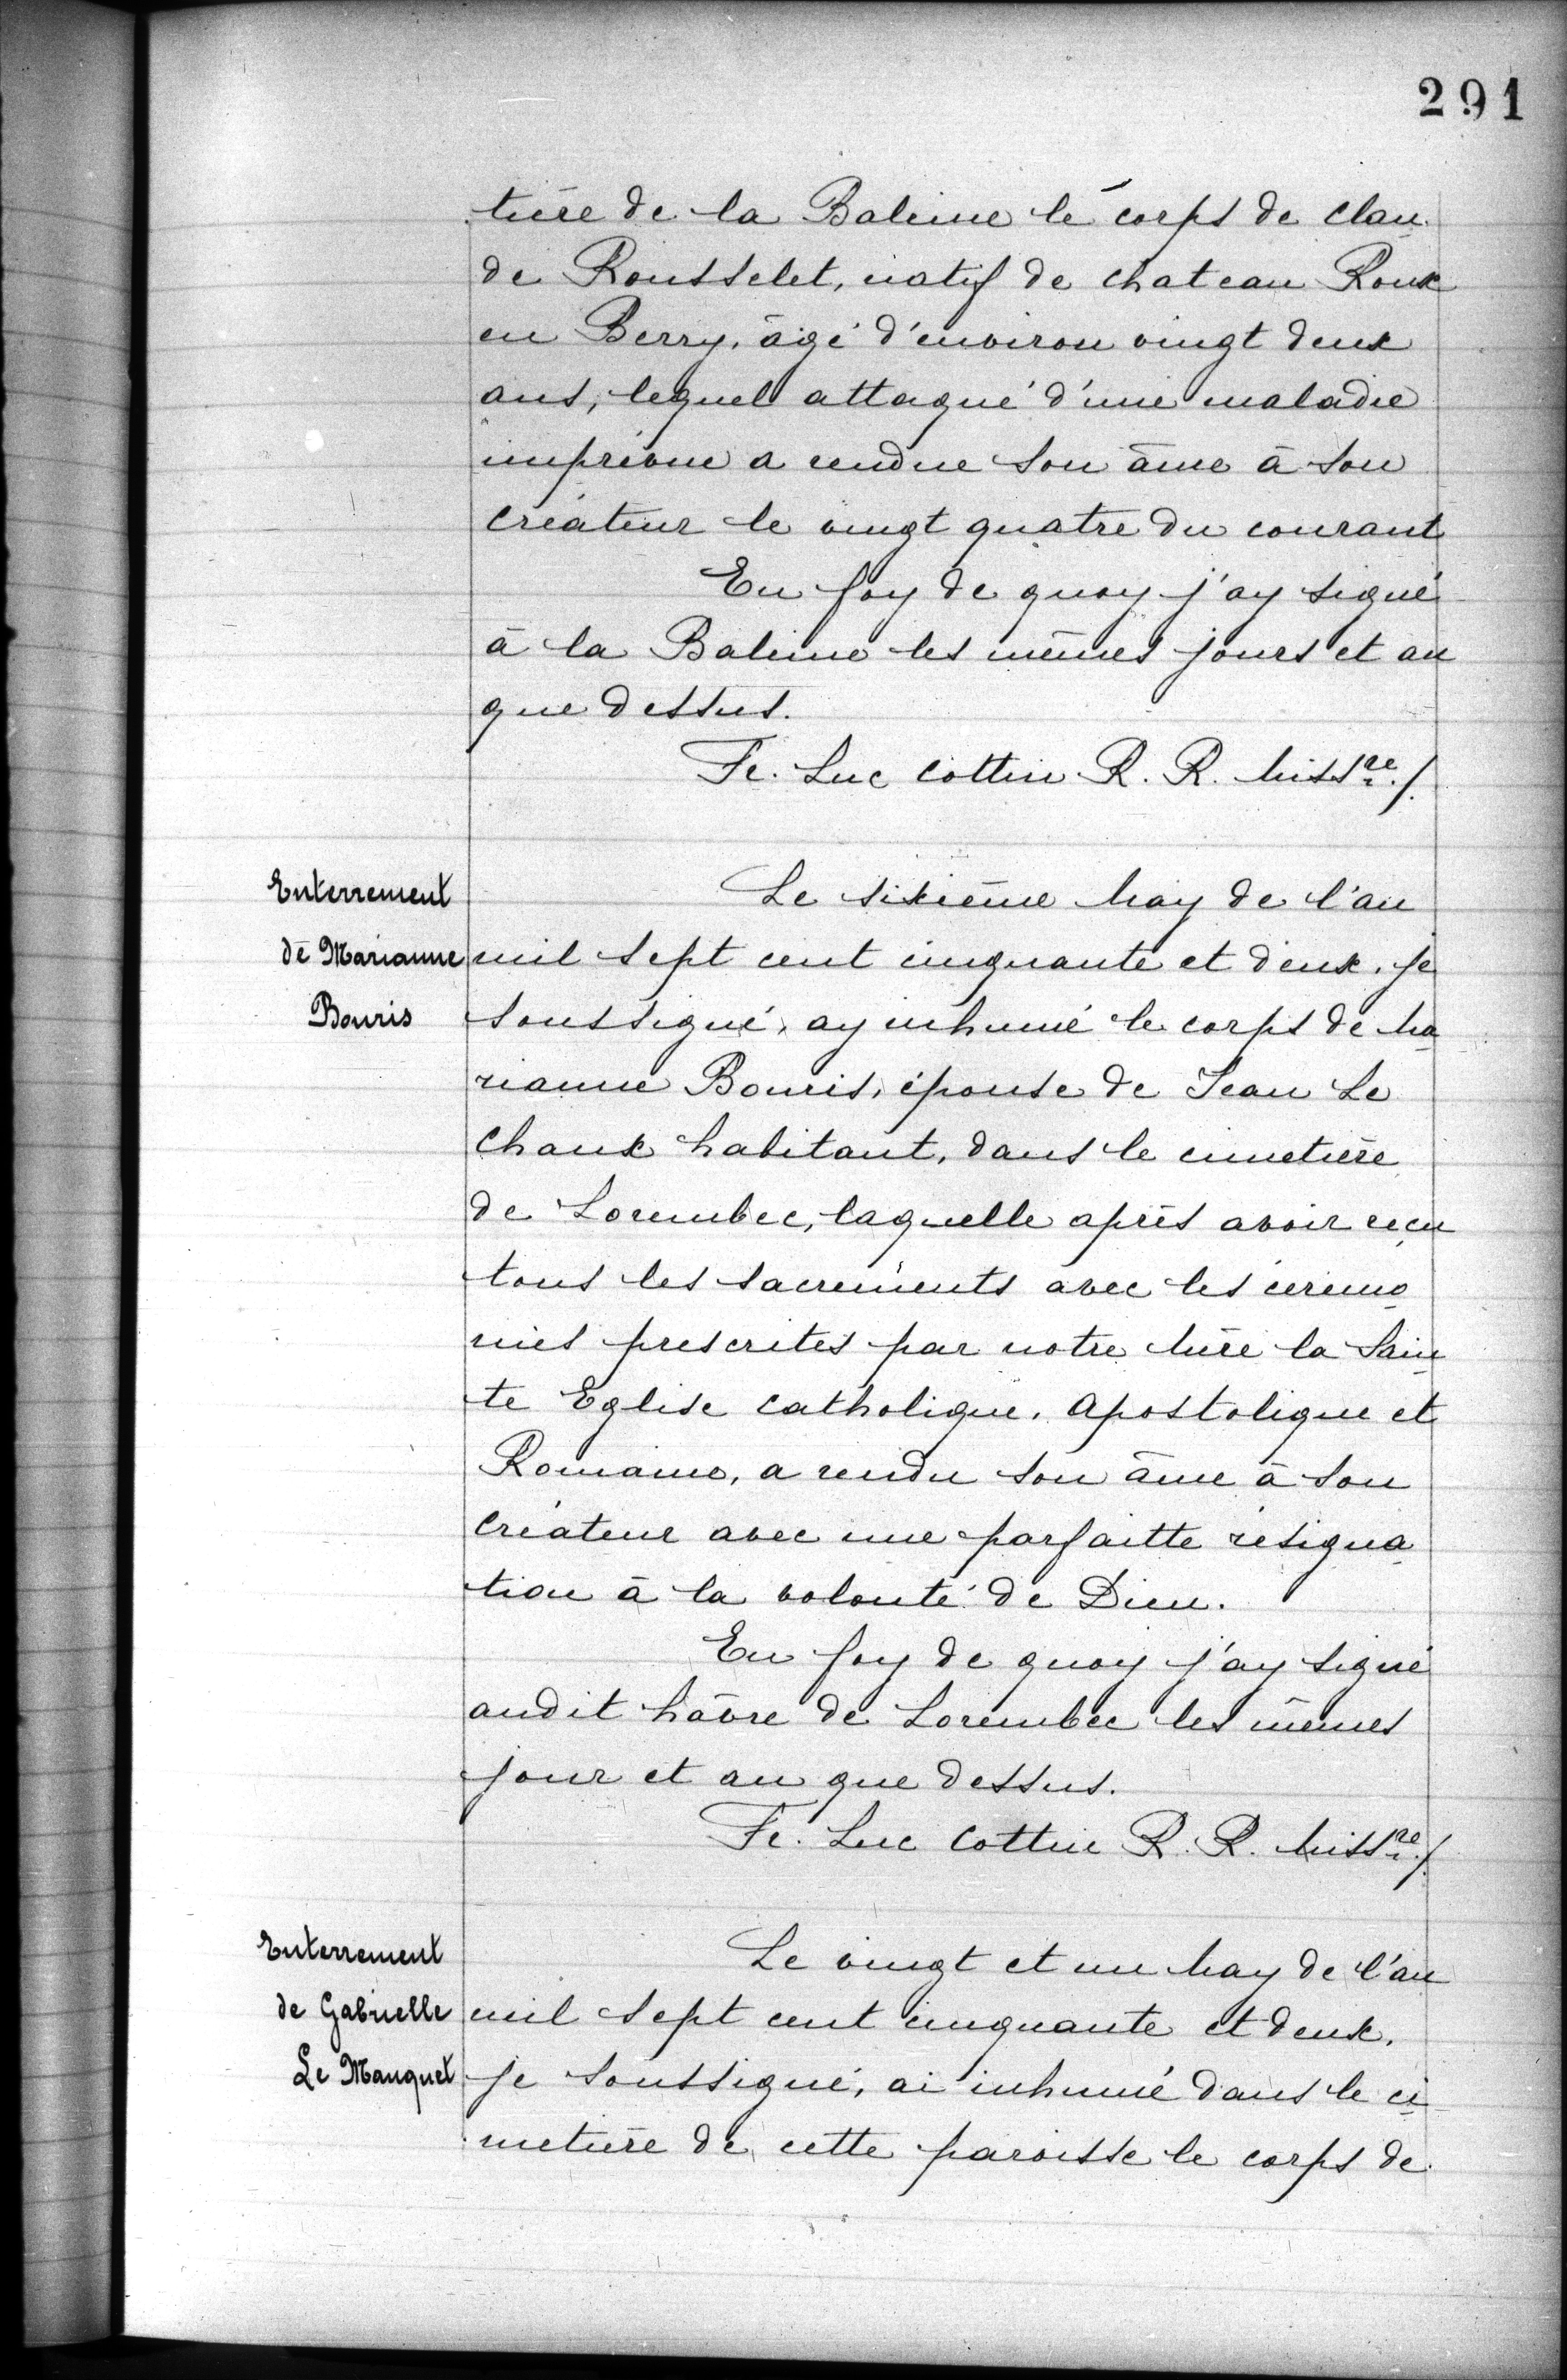 291
tière de la Baleine le corps de Clau
de Rousselet, natif de Chateau Roux
en Berry, âgé d'environ vingt deux
ans, lequel attaqué d'une maladie
imprévue a rendue son âme à son
Créateur le vingt quatre du courant
En foy de quoy j'ay signé
à la Baleine les mêmes jours et an
que dessus.
Fr. Luc Cottin R. R. Miss.re /.
Enterrement
de Marianne
Bouris
Le sixième May de l'an
mil sept cent cinquante et deux, je
soussigné, ay inhumé le corps de Ma
rianne Bouris, épouse de Jean Le
Chaux habitant, dans le cimetière
de Lorembec, laquelle après avoir reçu
tous les sacrements avec les cérémo
nies prescrites par notre Mère la Sain
te Eglise Catholique, Apostolique et
Romaine, a rendu son âme à son
Créateur avec une parfaitte résigna
tion à la volonté de Dieu.
En foy de quoy j'ay signé
audit hâvre de Lorembec les mêmes
jour et an que dessus.
Fr. Luc Cottin R. R. Miss.re /.
Enterrement
de Gabrielle
Le Manquet
Le vingt et un May de l'an
mil sept cent cinquante et deux,
je soussigné, ai inhumé dans le ci
metière de cette paroisse le corps de